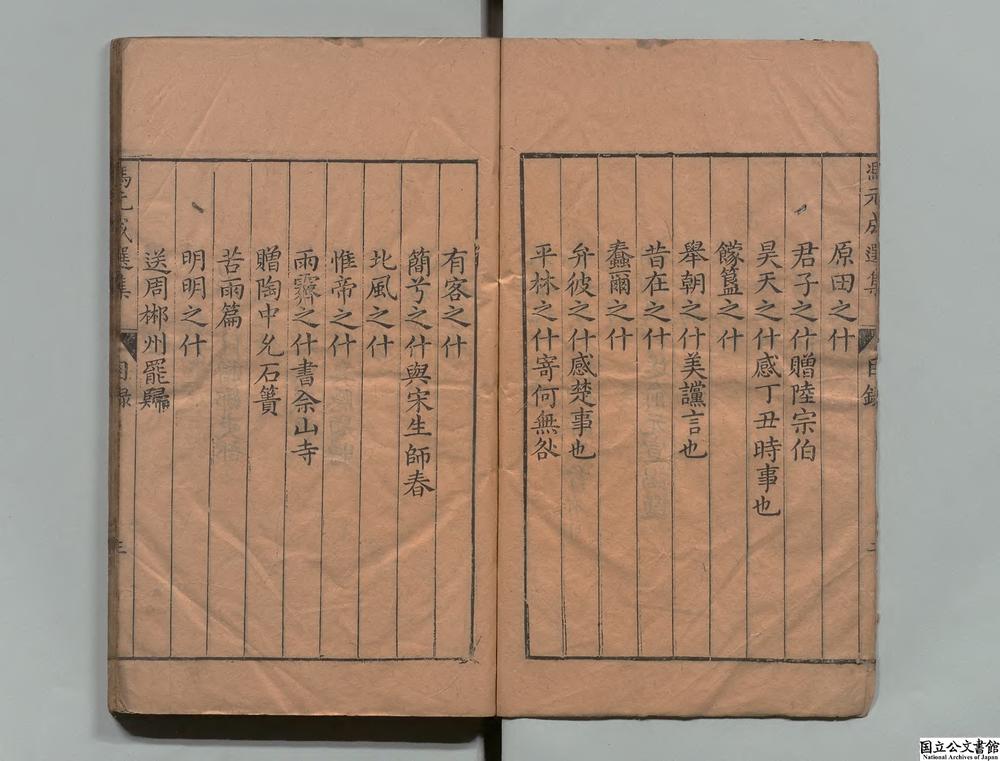 馮元成選集
目錄
原田之什
君子之什贈陸宗伯
昊天之什感丁丑時事也
饛簋之什
舉朝之什美讜言也
昔在之什
蠢爾之什
弁彼之什感楚事也
平林之什寄何無咎
有客之什
簡兮之什與宋生師春
北風之什
惟帝之什
雨霽之什書佘山寺
贈陶中允石簣
苦雨篇
明明之什
送周郴州罷歸
馮元成選集
目錄
三
国立公文書館
National Archives of Japan